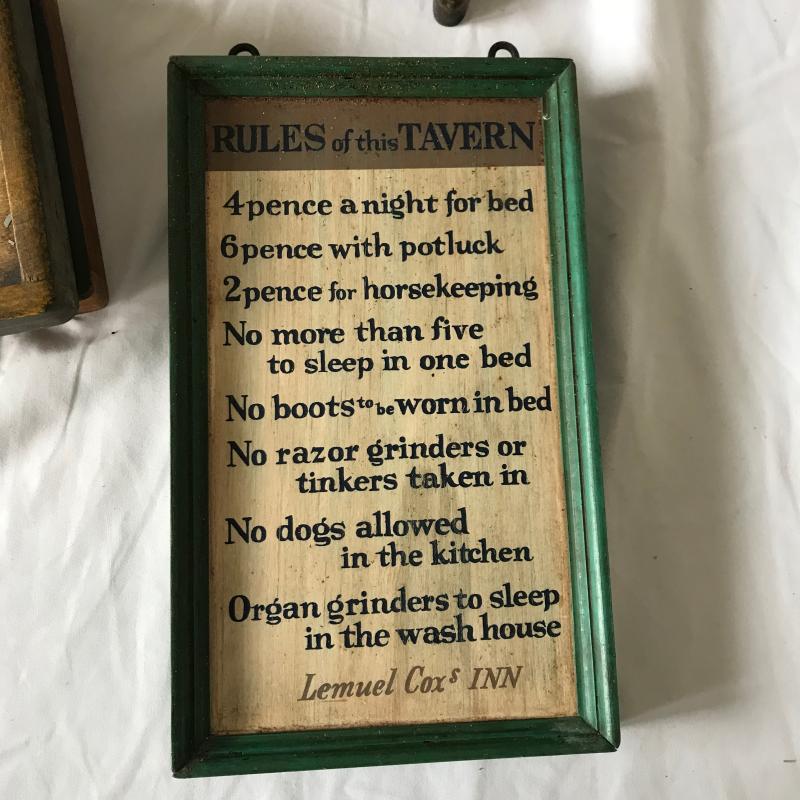 RULES of this TAVERN
4 pence a night for bed
6 pence with potluck
2 pence for horsekeeping
No more than five
to sleep in one bed
No boots to be worn in bed
No razor grinders or
tinkers taken in
No dogs allowed
in the kitchen
Organ grinders to sleep
in the wash house
Lemuel Coxs INN